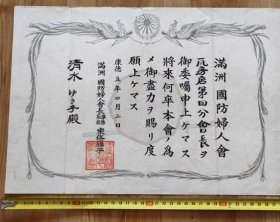 滿洲國防婦人會
第四分會長ヲ
御委嘱申上ケマス
將來何卒本會ノ爲
メ御盡力ヲ賜リ度
願上ケマス
康德五年四月二日
滿洲國防婦人會長
清水
殿